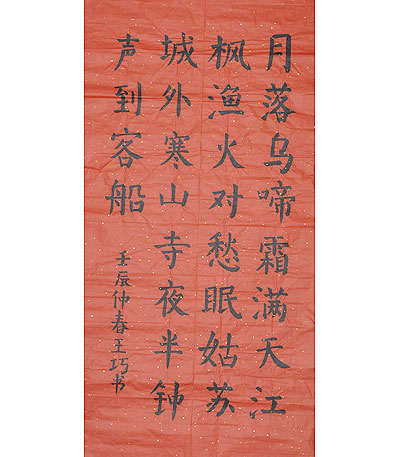 月落乌啼霜满天江
枫渔火对愁眠姑苏
城外寒山寺夜半钟
声到客船
壬辰仲春王巧书